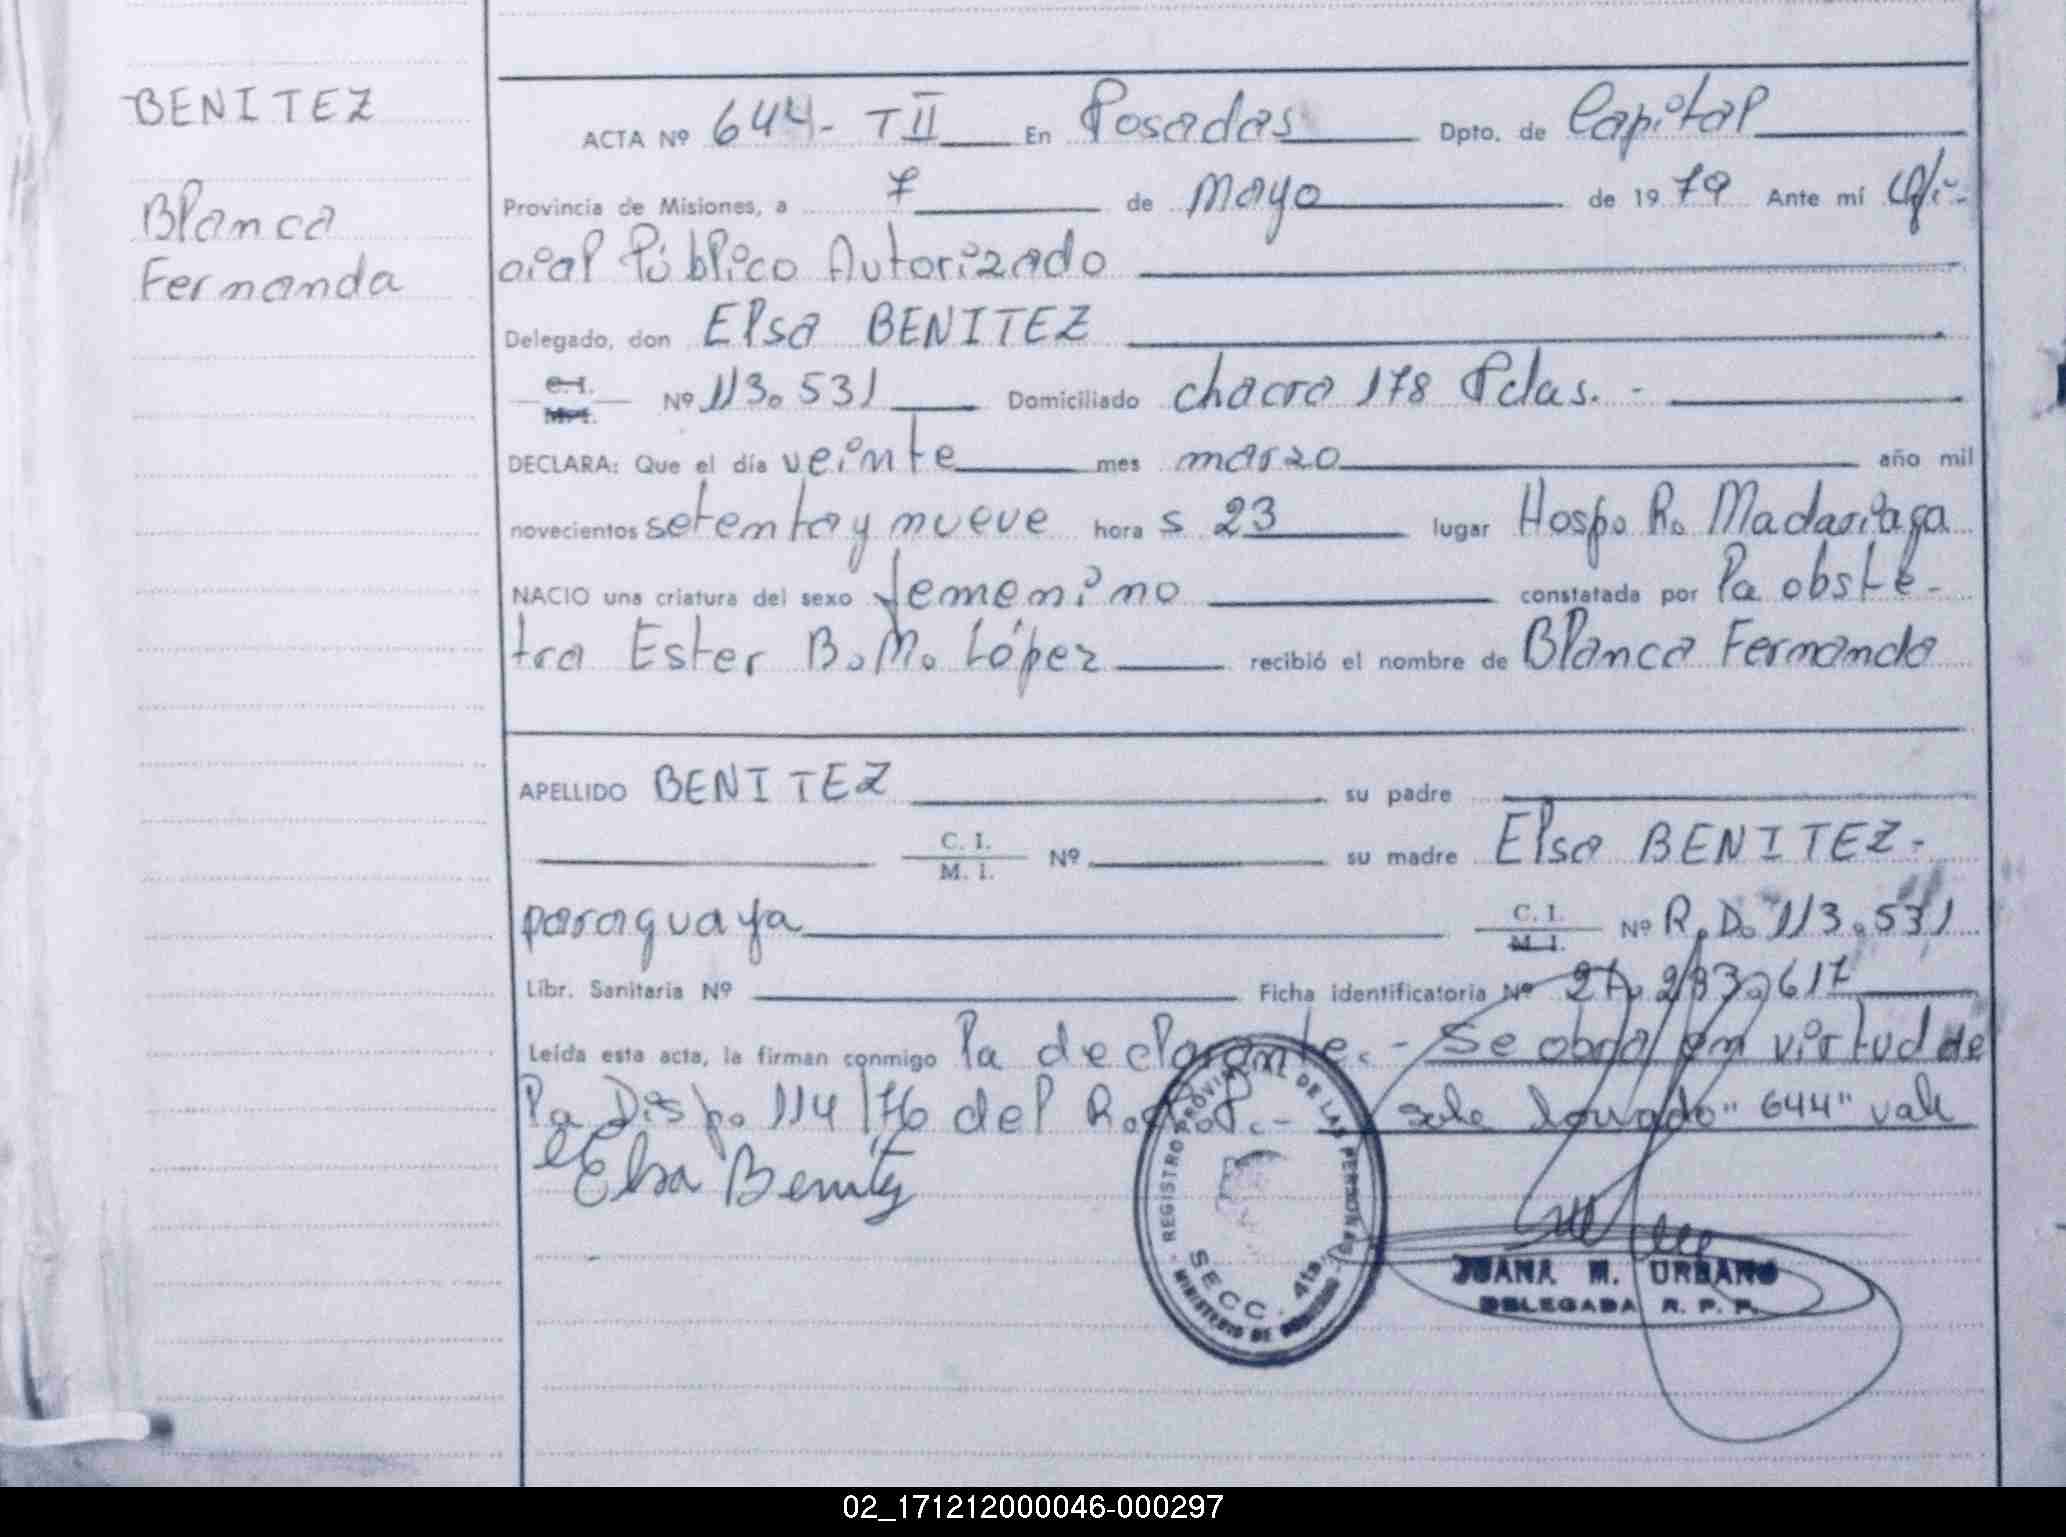 BENITEZ
Blanca
Fernanda
ACTA Nº 644- T II En Posadas Dpto. de Capital
Provincia de Misiones, a 7 de Mayo de 1979 Ante mí Ofi-
cial Público Autorizado
Delegado, don Elsa BENITEZ
C.I. M.I. Nº 113.531 Domiciliado chacra 178 Pdas.-
DECLARA: Que el día veinte mes marzo año mil
novecientos setenta y nueve hora s 23 lugar Hosp. R. Madariaga
NACIO una criatura del sexo femenino constatada por la obste-
tra Ester B.M. López recibió el nombre de Blanca Fernanda
APELLIDO BENITEZ su padre
C. I. M. I. Nº su madre Elsa BENITEZ.-
paraguaya C. I. M. I. Nº R.D. 113.531
Libr. Sanitaria Nº Ficha identificatoria Nº 27.283.617
Leída esta acta, la firman conmigo la declarante.- Se obra en virtud de
la Disp. 114/76 del R.P.P.- vale
"644" vale
Elsa Benitez
REGISTRO PROVINCIAL DE LAS PERSONAS
SECC. 4ta.
MINISTERIO DE GOBIERNO
JUANA M. URBANO
DELEGADA R. P. P.
02_171212000046-000297